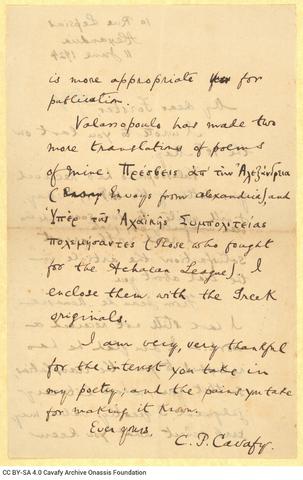 is more appropriate for
publication.
Valassopoulo has made two
more translations of poems
of mine: Πρέσβεις ἀπ' τὴν Ἀλεξάνδρεια
(Envoys from Alexandria) and
Ὑπὲρ τῆς Ἀχαϊκῆς Συμπολιτείας
πολεμήσαντες (Those who fought
for the Achaean League). I
enclose them with the Greek
originals.
I am very, very thankful
for the interest you take in
my poetry; and the pains you take
for making it known.
Ever yours,
C. P. Cavafy.
CC BY-SA 4.0 Cavafy Archive Onassis Foundation